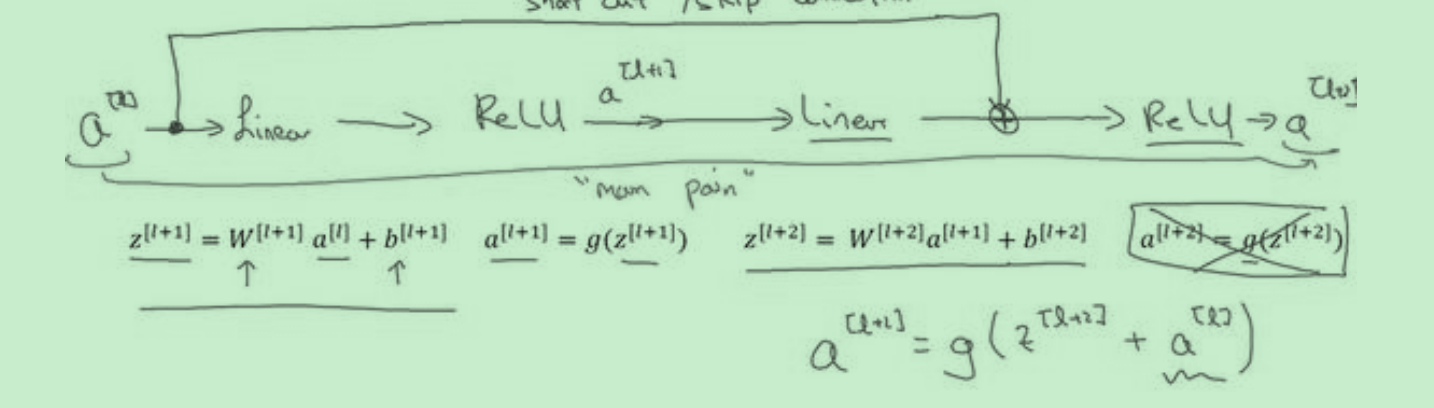 short cut / skip connection
a^[l] → Linear → ReLU a^[l+1] → Linear → ReLU → a^[l+2]
"main path"
z^[l+1] = W^[l+1] a^[l] + b^[l+1] a^[l+1] = g(z^[l+1]) z^[l+2] = W^[l+2]a^[l+1] + b^[l+2] a^[l+2] = g(z^[l+2])
a^[l+2] = g(z^[l+2] + a^[l])